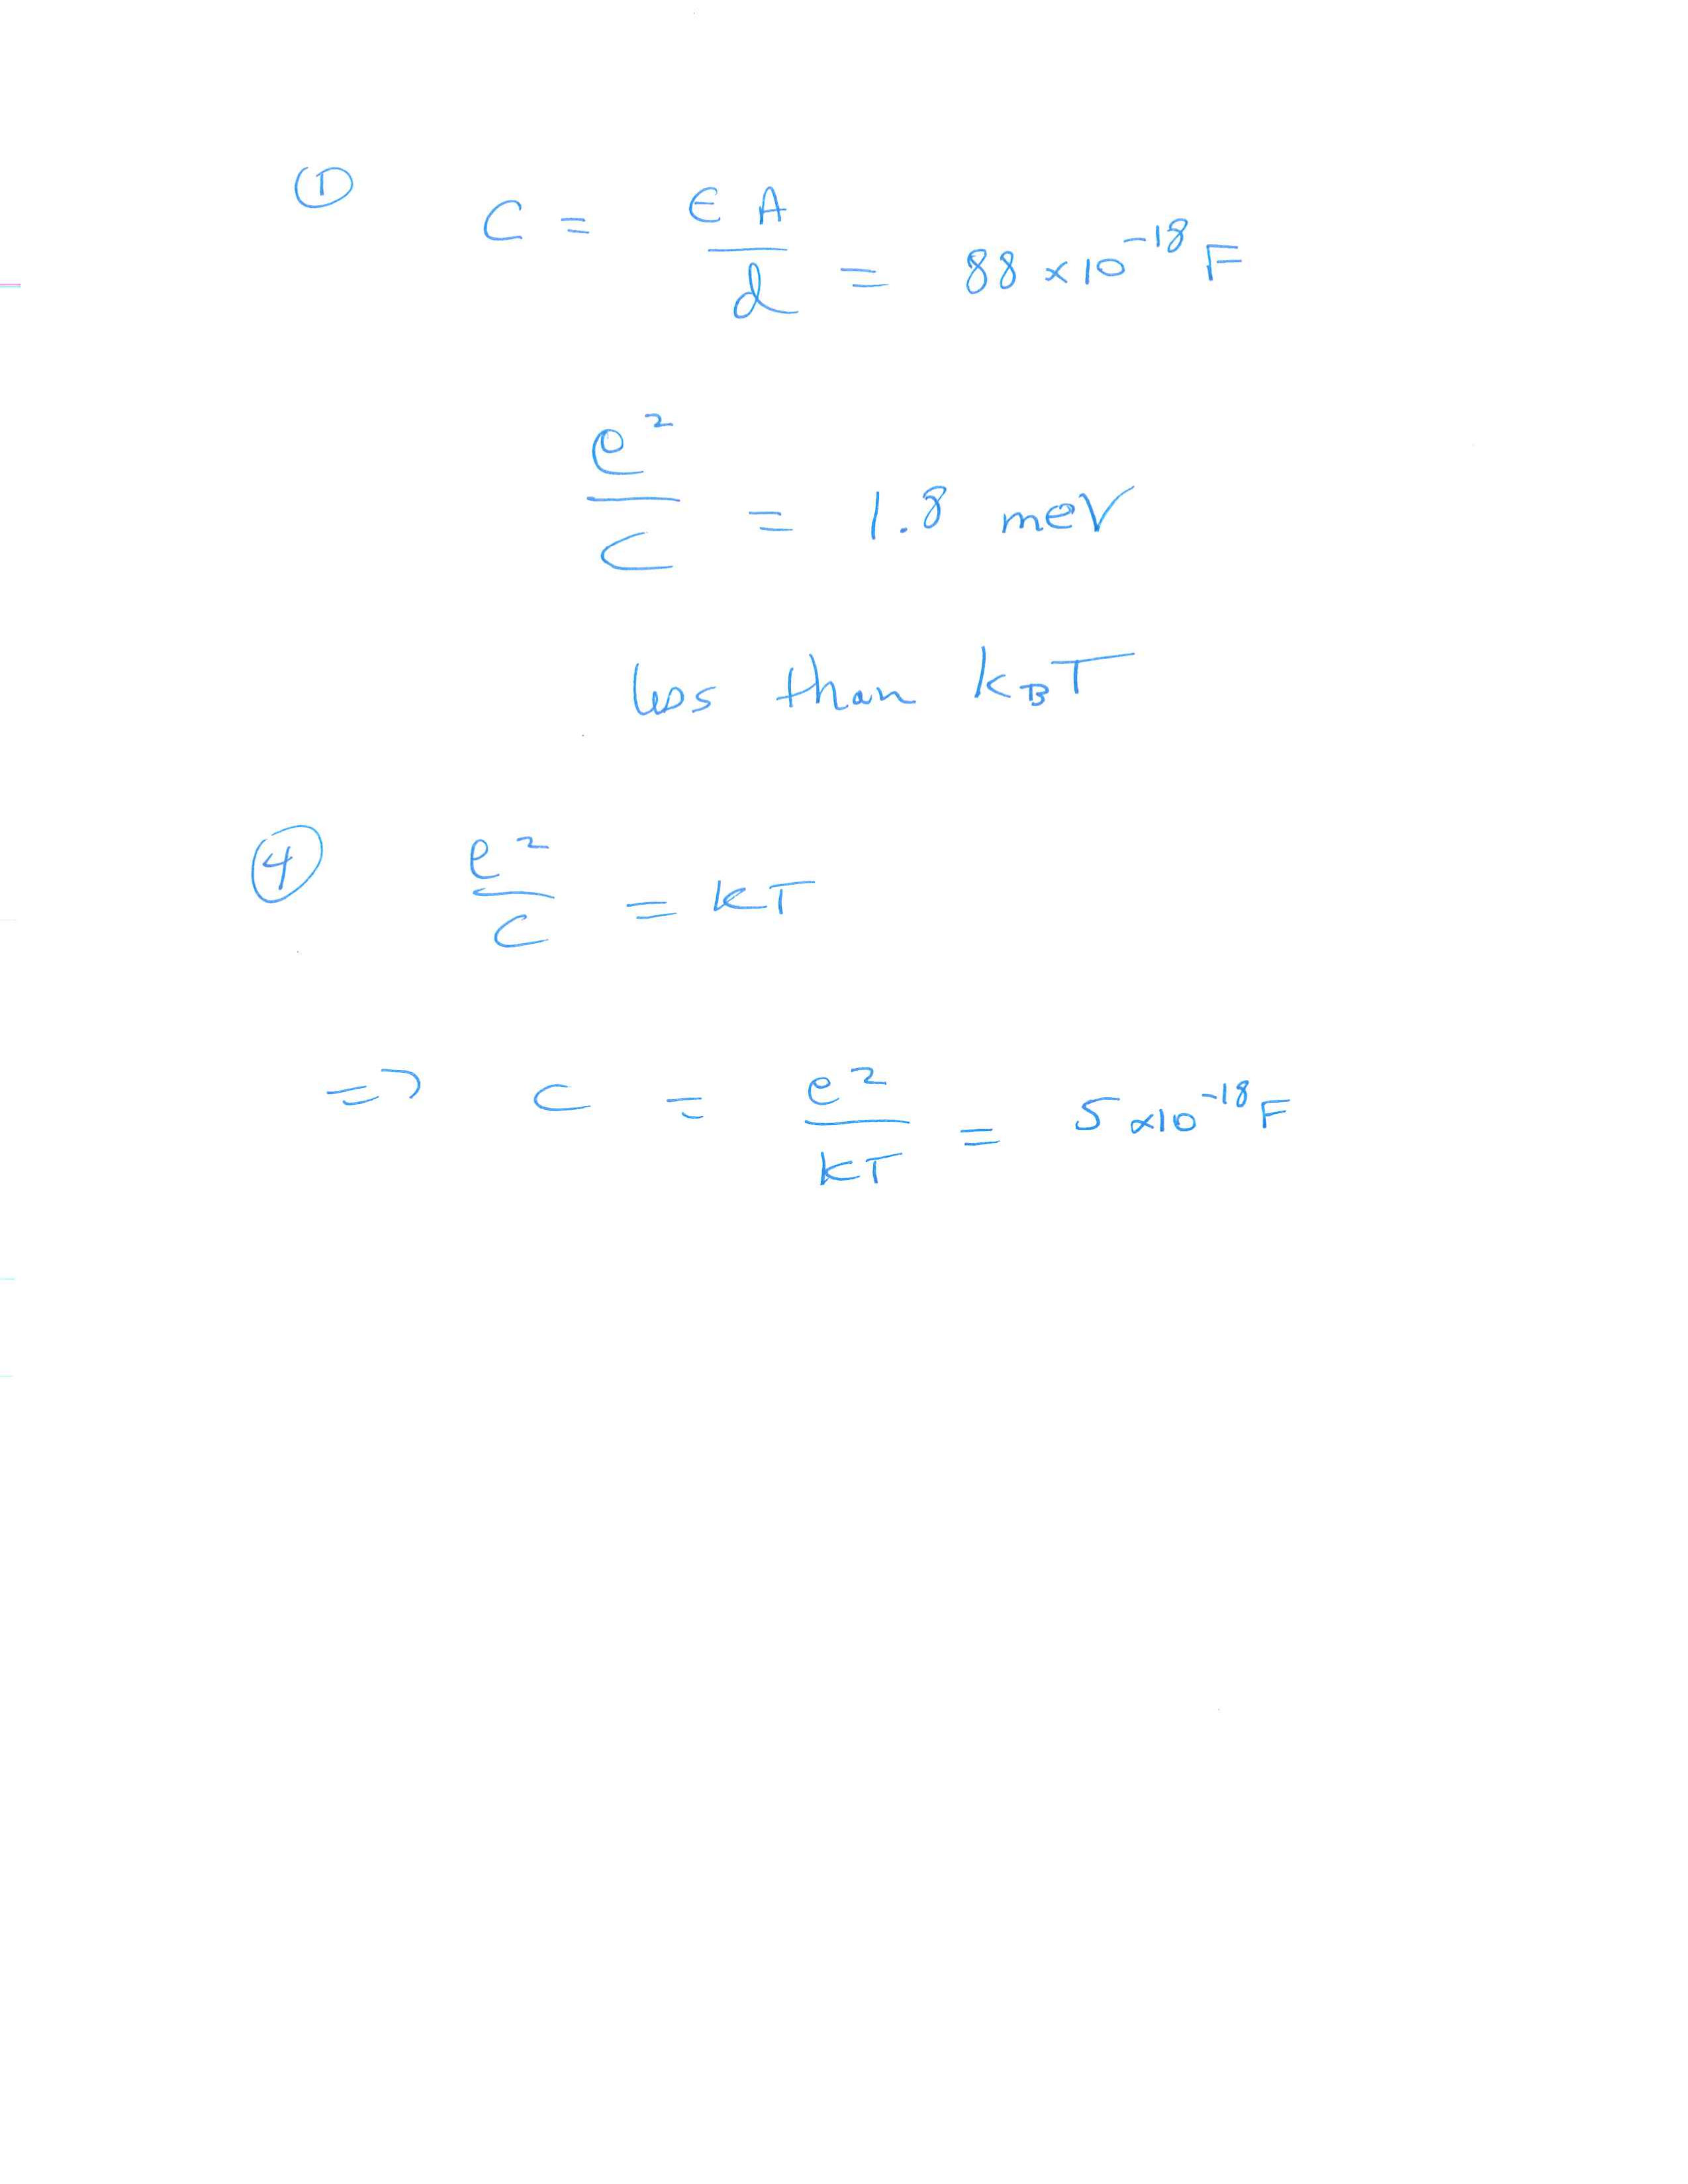 ① C = ϵ A / d = 88 ×10⁻¹⁸ F
e² / C = 1.8 meV
less than k_B T
④ e² / C = kT
=> C = e² / kT = 5 ×10⁻¹⁸ F